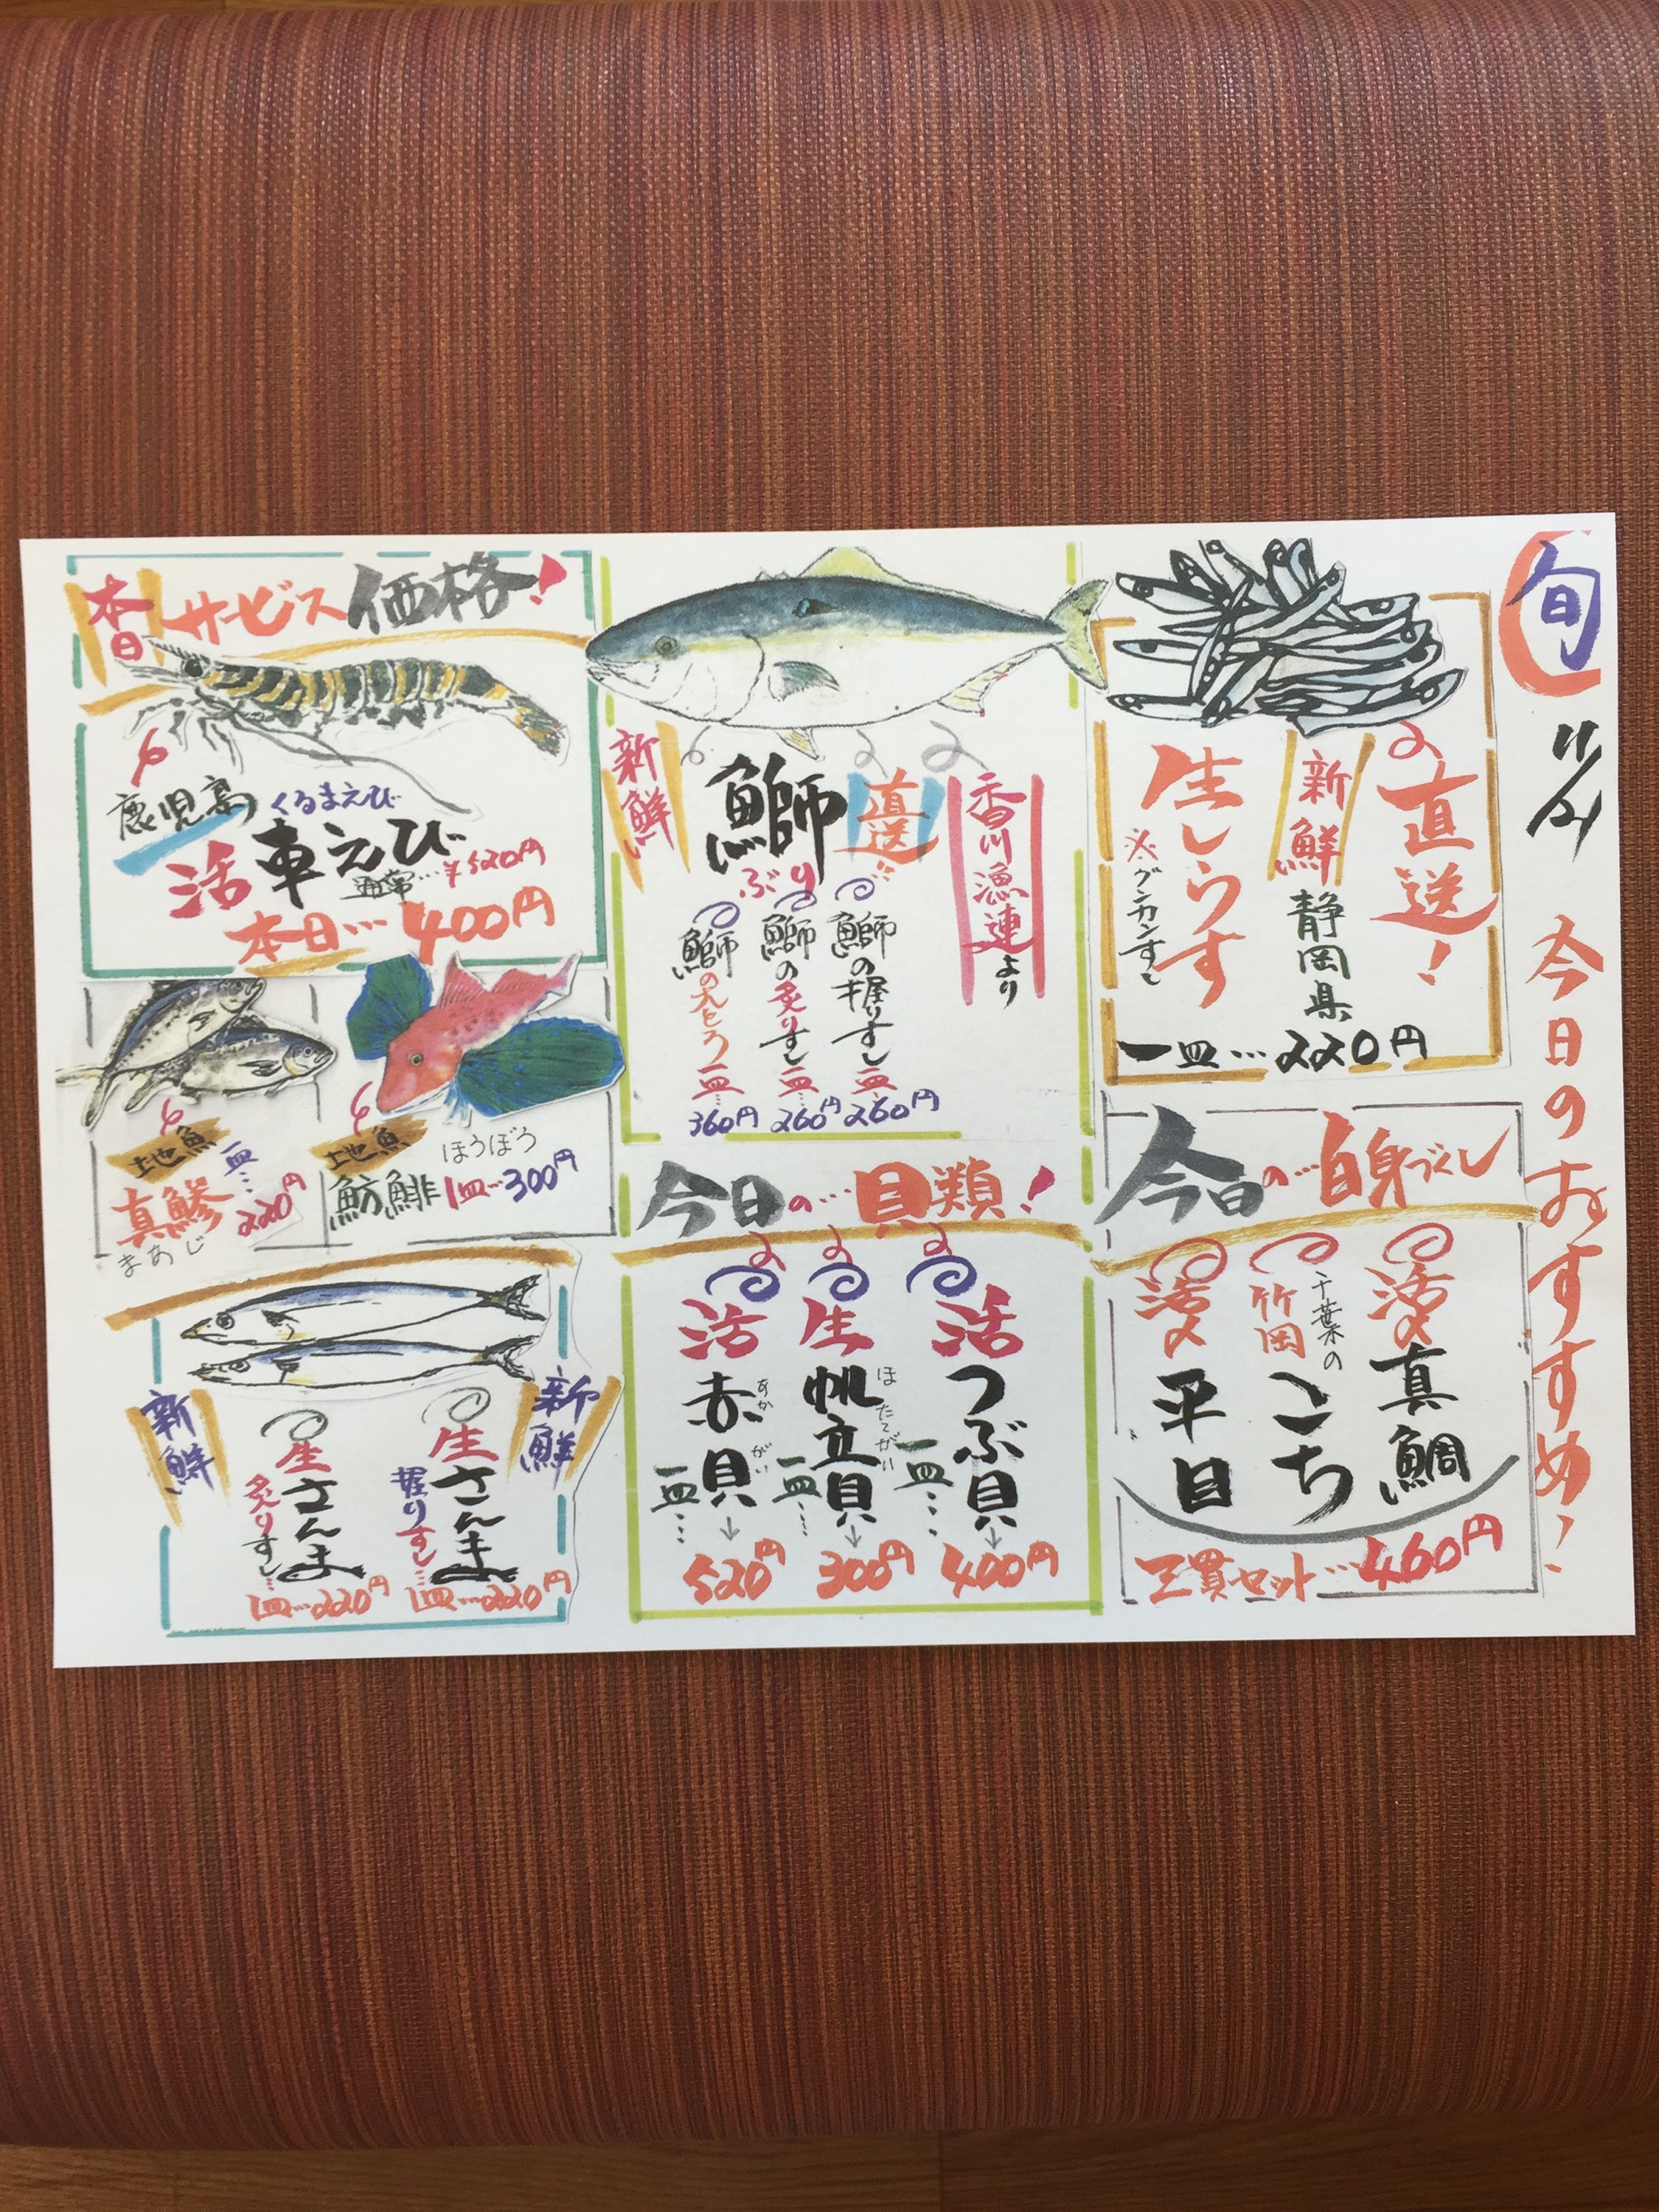 旬
11/21
今日のおすすめ!
直送!
新鮮
静岡県
生しらす
※グンカンすし
一皿…220円
今日の…白身づくし
活〆
真鯛
千葉の
竹岡
こち
活〆
平目
三貫セット…460円
香川漁連より
直送!!
鰤
ぶり
新鮮
鰤の握りすし一皿…
260円
鰤の炙りすし一皿…
260円
鰤の大とろ一皿…
360円
今日の…貝類!
活
つぶ貝
一皿…
400円
生
帆立貝
ほたてがい
一皿…
300円
活
赤貝
あかがい
一皿…
520円
本日サービス価格!
鹿児島
くるまえび
活車えび
通常…¥520円
本日…400円
地魚
ほうぼう
魴鮄
1皿…300円
地魚
真鯵
まあじ
一皿…
220円
新鮮
生さんま
握りすし…
1皿…220円
生さんま
炙りすし…
1皿…220円
新鮮